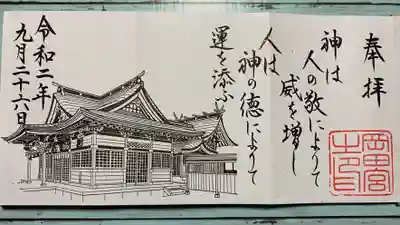 奉拝
神は
人の敬によりて
威を増し
人は
神の徳によりて
運を添ふ
令和二年
九月二十六日
岡田宮